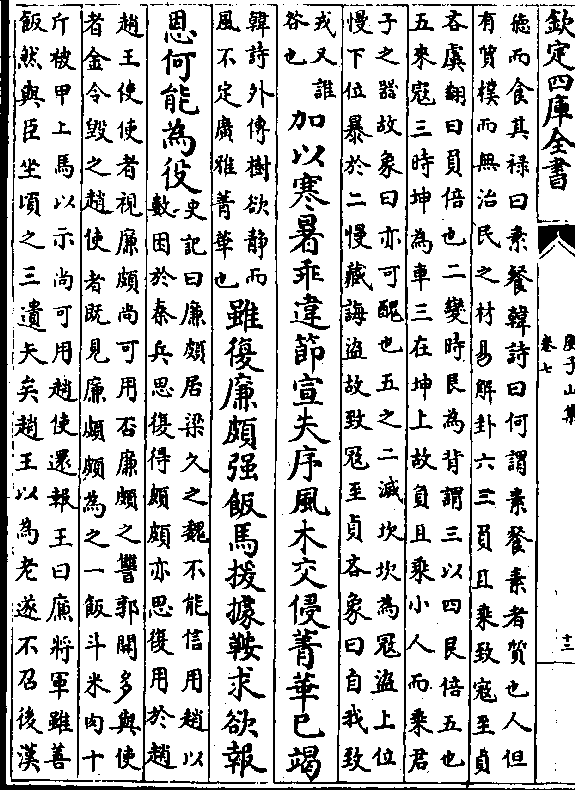 欽定四庫全書
庾子山集
卷七
十三
德而食其禄曰素餐韓詩曰何謂素餐素者質也人但
有質樸而無治民之材易解卦六三負且乗致寇至貞
吝虞翻曰負倍也二變時艮為背謂三以四艮倍五也
五來寇三時坤為車三在坤上故負且乗小人而乗君
子之器故象曰亦可醜也五之二滅坎坎為寇盜上位
慢下位暴於二慢藏誨盜故致寇至貞吝象曰自我致
戎又誰
咎也
加以寒暑乖違節宣失序風木交侵菁華已竭
韓詩外傳樹欲静而
風不定廣雅菁華也
雖復廉頗强飯馬援據鞍求欲報
恩何能為役
史記曰廉頗居梁久之魏不能信用趙以
數困於秦兵思復得頗頗亦思復用於趙
趙王使使者視廉頗尚可用否廉頗之讐郭開多與使
者金令毁之趙使者既見廉頗頗為之一飯斗米肉十
斤被甲上馬以示尚可用趙使還報王曰廉將軍雖善
飯然與臣坐頃之三遺矢矣趙王以為老遂不召後漢